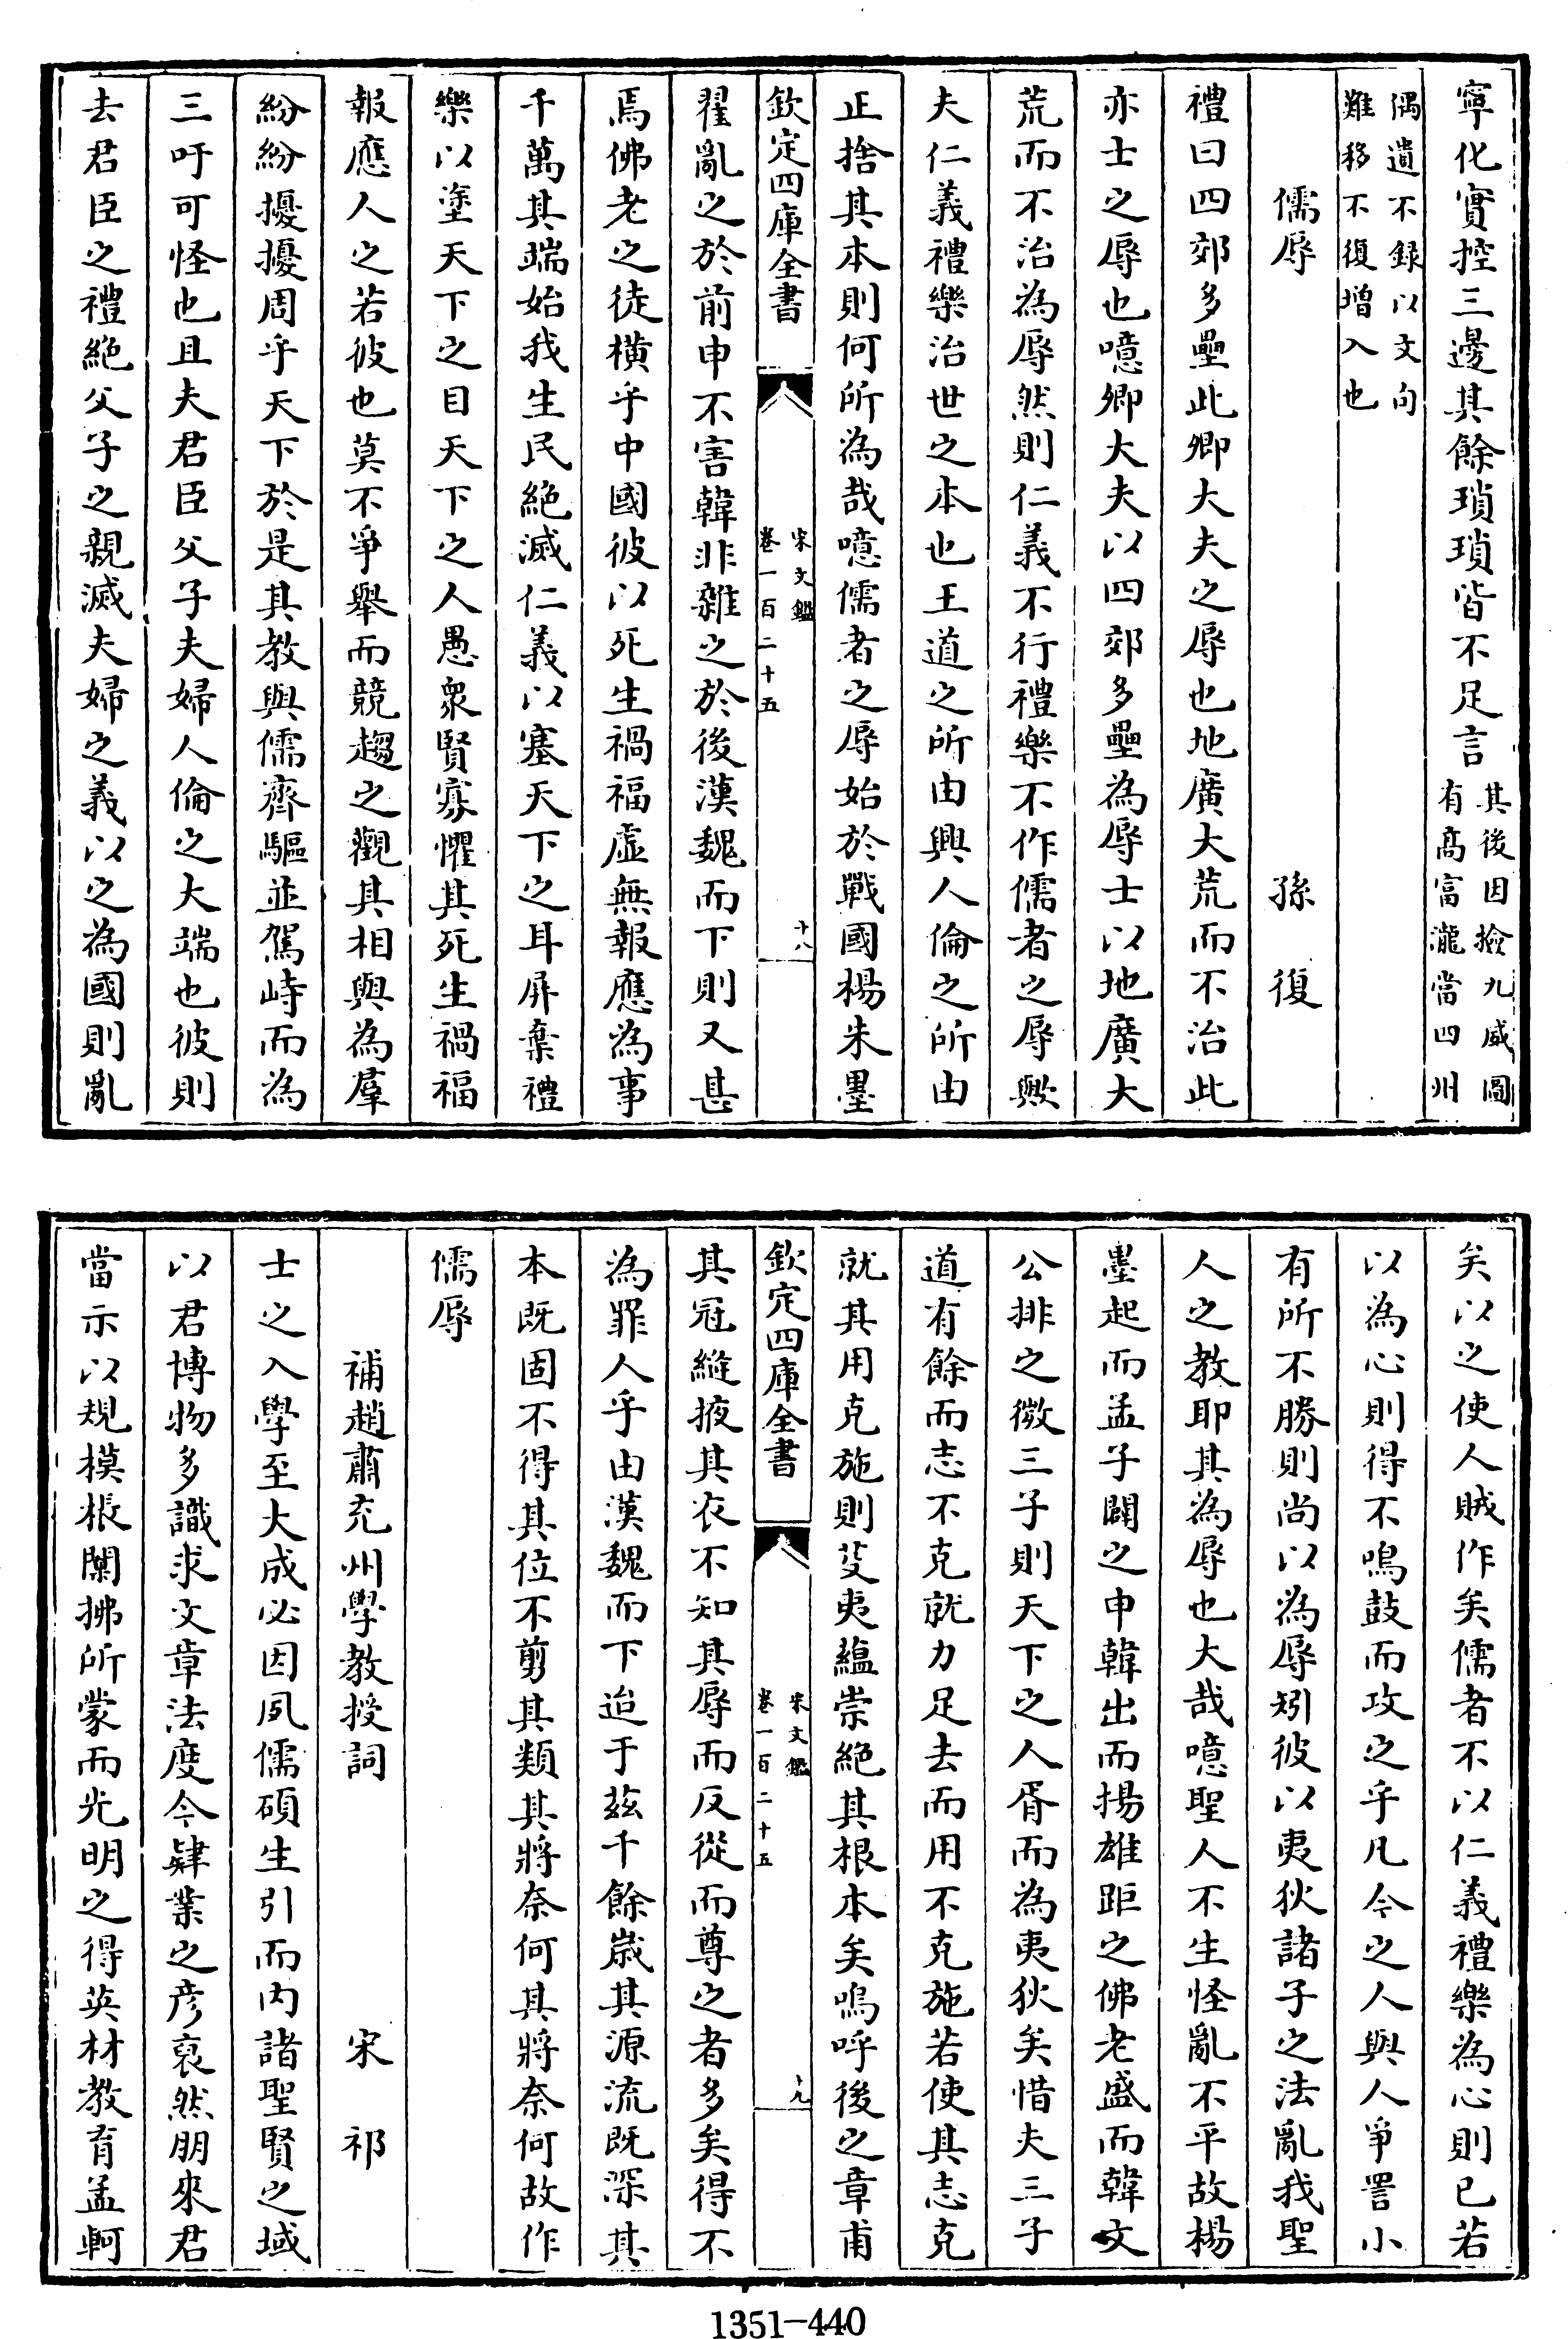 寧化實控三邊其餘瑣瑣皆不足言其後因撿九威圖有髙富瀧當四州
偶遺不録以文向難移不復增入也
儒辱 孫復
禮曰四郊多壘此卿大夫之辱也地廣大荒而不治此
亦士之辱也噫卿大夫以四郊多壘為辱士以地廣大
荒而不治為辱然則仁義不行禮樂不作儒者之辱歟
夫仁義禮樂治世之本也王道之所由興人倫之所由
正捨其本則何所為哉噫儒者之辱始於戰國楊朱墨
欽定四庫全書 宋文鑑 卷一百二十五 十八
翟亂之於前申不害韓非雜之於後漢魏而下則又甚
焉佛老之徒横乎中國彼以死生禍福虚無報應為事
千萬其端始我生民絶滅仁義以塞天下之耳屏棄禮
樂以塗天下之目天下之人愚衆賢寡懼其死生禍福
報應人之若彼也莫不爭舉而競趨之觀其相與為羣
紛紛擾擾周乎天下於是其教與儒齊驅並駕峙而為
三吁可怪也且夫君臣父子夫婦人倫之大端也彼則
去君臣之禮絶父子之親滅夫婦之義以之為國則亂
矣以之使人賊作矣儒者不以仁義禮樂為心則已若
以為心則得不鳴鼓而攻之乎凡今之人與人爭詈小
有所不勝則尚以為辱矧彼以夷狄諸子之法亂我聖
人之教耶其為辱也大哉噫聖人不生怪亂不平故楊
墨起而孟子闢之申韓出而揚雄距之佛老盛而韓文
公排之微三子則天下之人胥而為夷狄矣惜夫三子
道有餘而志不克就力足去而用不克施若使其志克
就其用克施則芟夷藴崇絶其根本矣嗚呼後之章甫
欽定四庫全書 宋文鑑 卷一百二十五 十九
其冠縫掖其衣不知其辱而反從而尊之者多矣得不
為罪人乎由漢魏而下迨于茲千餘嵗其源流既深其
本既固不得其位不剪其類其將奈何其將奈何故作
儒辱
補趙肅充州學教授詞 宋祁
士之入學至大成必因夙儒碩生引而内諸聖賢之域
以君博物多識求文章法度今肄業之彦裒然朋來君
當示以規模棖闑拂所蒙而光明之得英材教育孟軻
1351-440